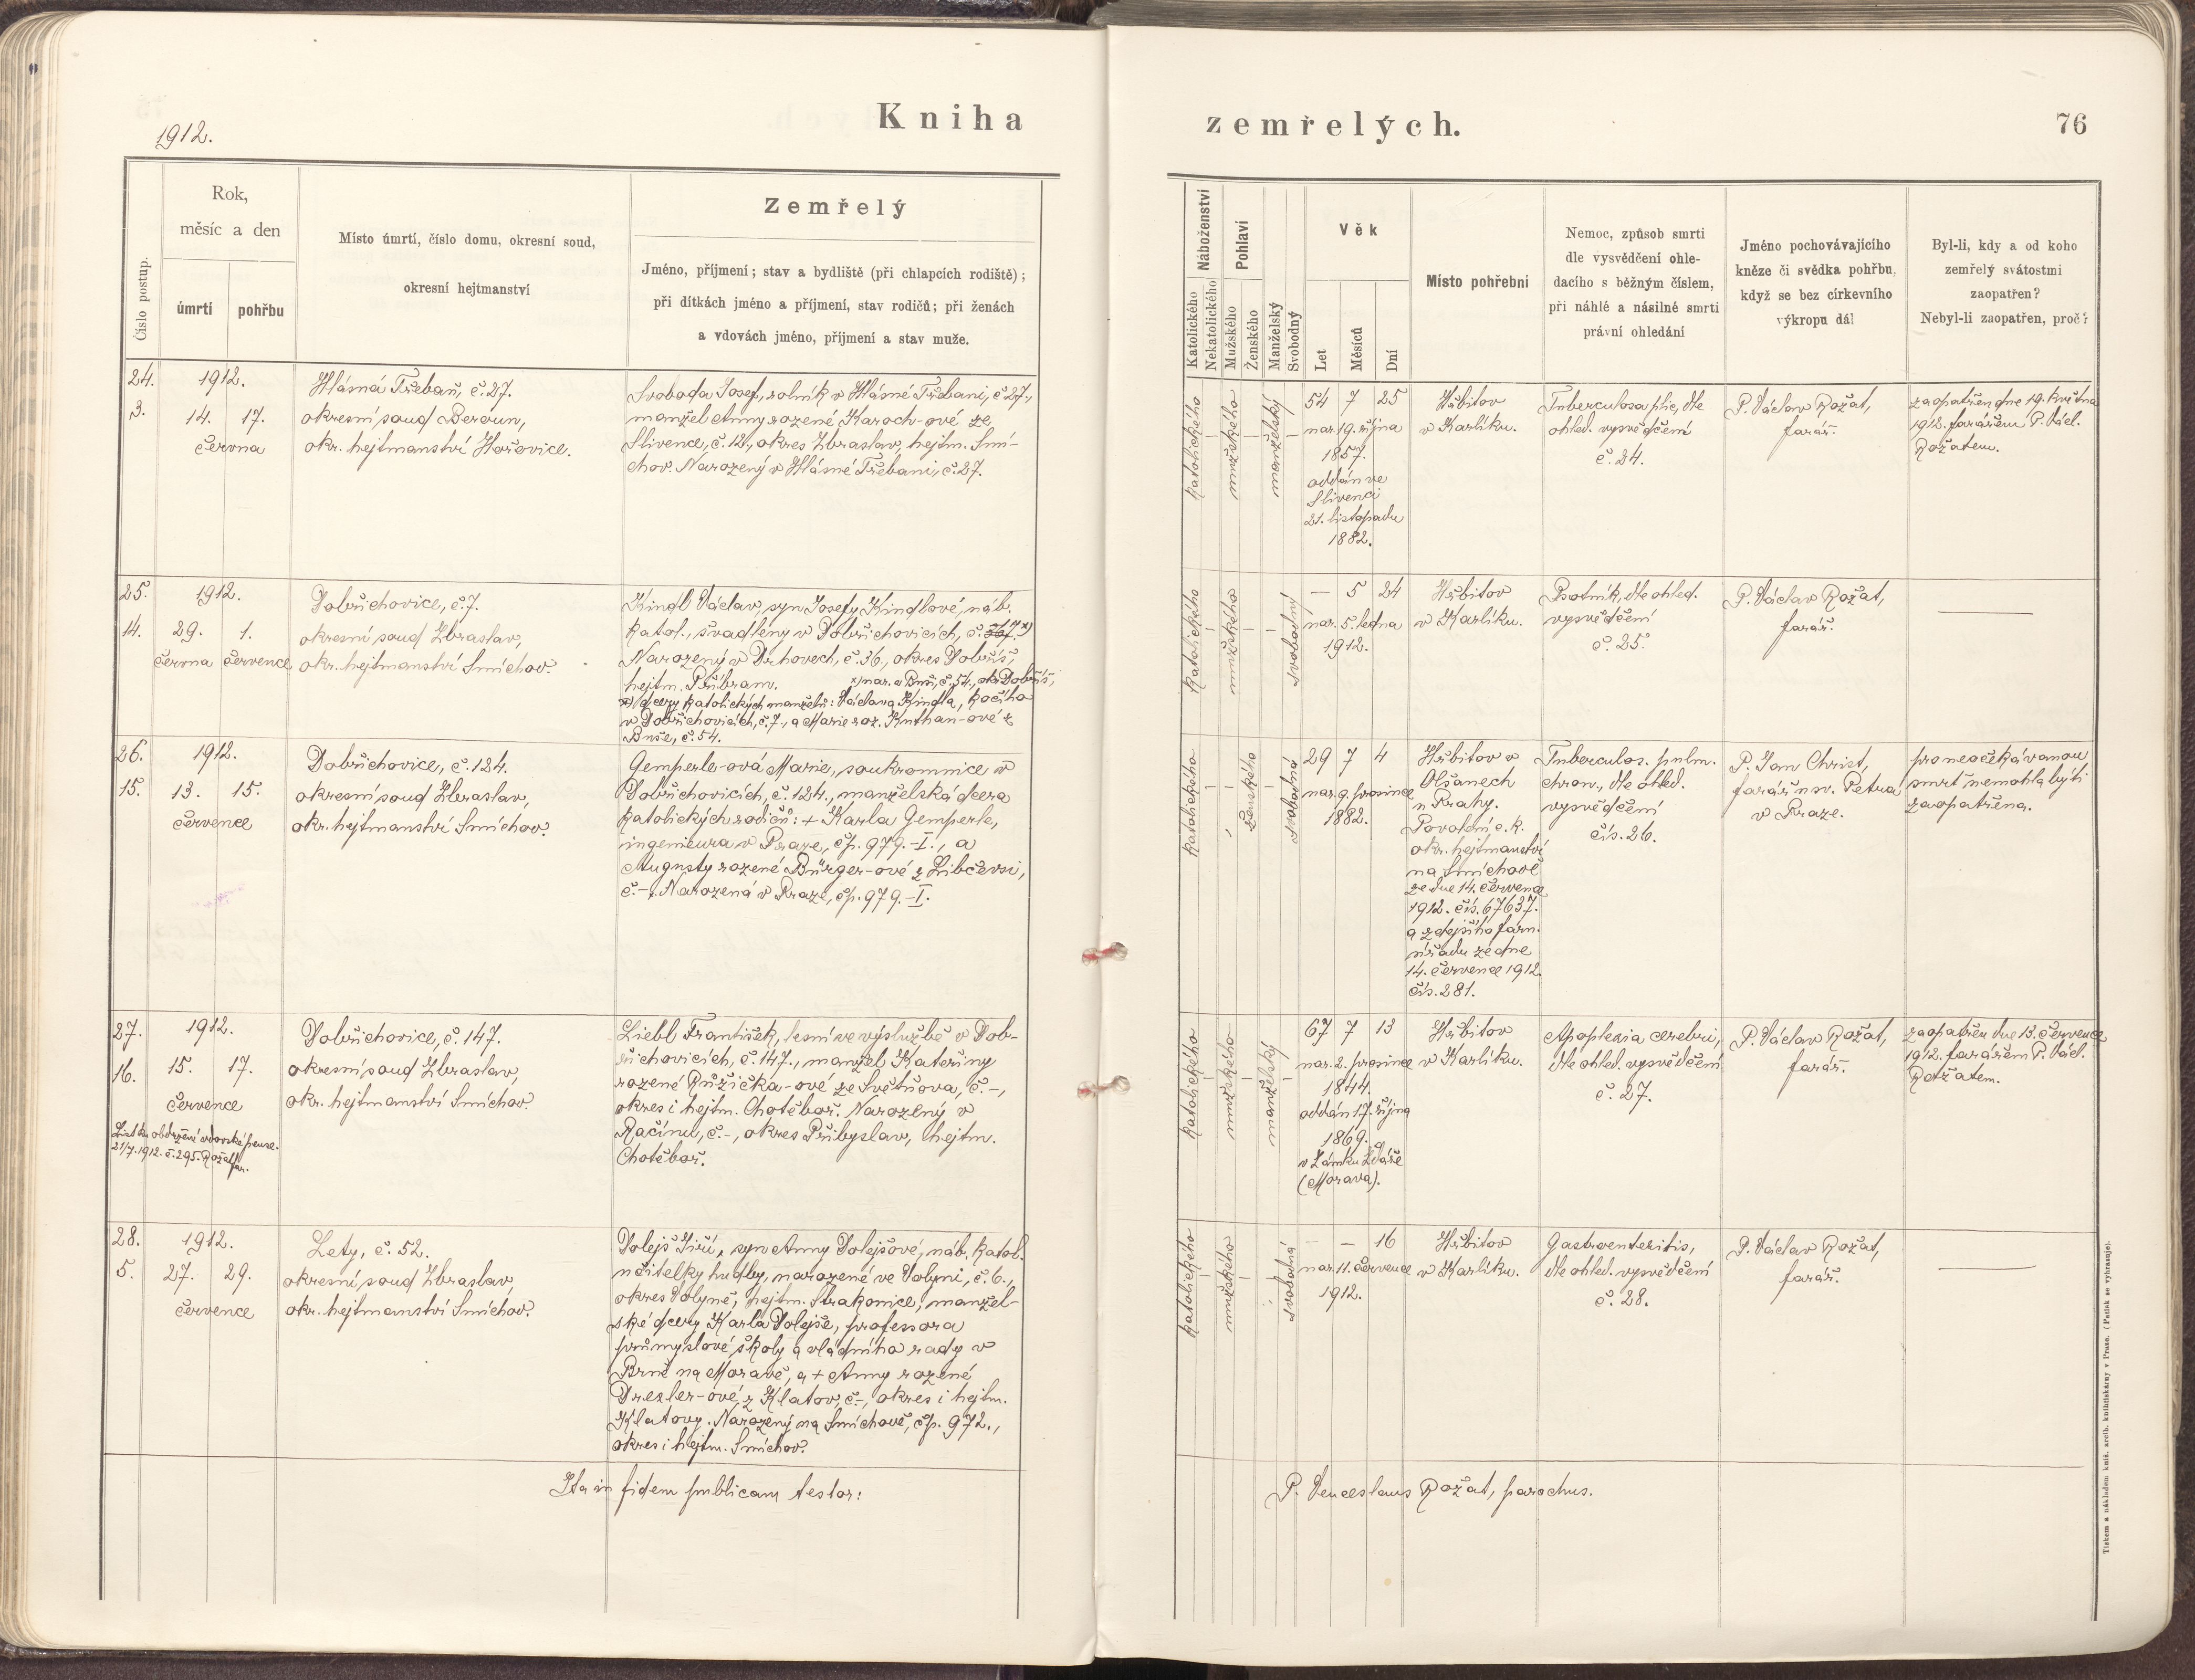 1912.
Kniha
zemřelých.
76
Číslo postup.
Rok,
měsíc a den
úmrtí
pohřbu
Místo úmrtí, číslo domu, okresní soud,
okresní hejtmanství
Zemřelý
Jméno, příjmení; stav a bydliště (při chlapcích rodiště);
při dítkách jméno a příjmení, stav rodičů; při ženách
a vdovách jméno, příjmení a stav muže.
Náboženství
Katolického
Nekatolického
Pohlaví
Mužského
Ženského
Manželský
Svobodný
Věk
Let
Měsíců
Dní
Místo pohřební
Nemoc, způsob smrti
dle vysvědčení ohle-
dacího s běžným číslem,
při náhlé a násilné smrti
právní ohledání
Jméno pochovávajícího
kněze či svědka pohřbu,
když se bez církevního
výkropu dál
Byl-li, kdy a od koho
zemřelý svátostmi
zaopatřen?
Nebyl-li zaopatřen, proč?
24.
3.
1912.
14. 17.
června
Hlásná Třebaň, č. 27.
okresní soud Beroun,
okr. hejtmanství Hořovice.
Svoboda Josef, rolník v Hlásné Třebani, č. 27.,
manžel Anny rozené Karoch-ové ze
Slivence, č. 12., okres Zbraslav, hejtm. Smí-
chov. Narozený v Hlásné Třebani, č. 27.
katolického
mužského
manželský
54 7 25
nar. 19. října
1857.
oddán ve
Slivenci
21. listopadu
1882.
Hřbitov
v Karlíku.
Tuberculosa plic, dle
ohled. vysvědčení
č. 24.
P. Václav Rožat,
farář.
zaopatřen dne 19. května
1912. farářem P. Václ.
Rožatem.
25.
14.
1912.
29. 1.
června července
Dobřichovice, č. 7.
okresní soud Zbraslav,
okr. hejtmanství Smíchov.
Kindl Václav, syn Josefy Kindlové, náb.
katol., švadleny v Dobřichovicích, č. 7. x)
Narozený v Drhovech, č. 36., okres Dobříš,
hejtm. Příbram. x) nar. v Buši, č. 54., okr. Dobříš,
x) dcery katolických manželů: Václava Kindla, kočího
v Dobřichovicích, č. 7., a Marie roz. Knthan-ové z
Buše, č. 54.
katolického
mužského
svobodný
— 5 24
nar. 5. ledna
1912.
Hřbitov
v Karlíku.
Psotník, dle ohled.
vysvědčení
č. 25.
P. Václav Rožat,
farář.
—
26.
15.
1912.
13. 15.
července
Dobřichovice, č. 124.
okresní soud Zbraslav,
okr. hejtmanství Smíchov.
Gemperle-ová Marie, soukromnice v
Dobřichovicích, č. 124., manželská dcera
katolických rodičů: + Karla Gemperle,
ingenieura v Praze, čp. 979.-I., a
Augusty rozené Bürger-ové z Libčevsi,
č. -. Narozená v Praze, čp. 979.-I.
katolického
ženského
svobodná
29 7 4
nar. 9. prosince
1882.
Hřbitov v
Olšanech
u Prahy.
Povolení c. k.
okr. hejtmanství
na Smíchově
ze dne 14. července
1912. čís. 67637.
a zdejšího farn.
úřadu ze dne
14. července 1912.
čís. 281.
Tuberculos. pulm.
chron., dle ohled.
vysvědčení
čís. 26.
P. Jan Christ,
farář u sv. Petra
v Praze.
pro neočekávanou
smrt nemohla býti
zaopatřena.
27.
16.
1912.
15. 17.
července
List ku obdržení vdovské pense.
21/7. 1912. č. 295. Rožat far.
Dobřichovice, č. 147.
okresní soud Zbraslav,
okr. hejtmanství Smíchov.
Liebl František, lesní ve výslužbě v Dob-
řichovicích, č. 147., manžel Kateřiny
rozené Růžička-ové ze Světňova, č. -,
okres i hejtm. Chotěboř. Narozený v
Račínu, č. -, okres Přibyslav, hejtm.
Chotěboř.
katolického
mužského
manželský
67 7 13
nar. 2. prosince
1844.
oddán 17. října
1869.
v Zámku Ždáře
(Morava).
Hřbitov
v Karlíku.
Apoplexia cerebri,
dle ohled. vysvědčení
č. 27.
P. Václav Rožat,
farář.
zaopatřen dne 13. července
1912. farářem P. Václ.
Rožatem.
28.
5.
1912.
27. 29.
července
Lety, č. 52.
okresní soud Zbraslav,
okr. hejtmanství Smíchov.
Dolejš Jiří, syn Anny Dolejšové, náb. katol.
učitelky hudby, narozené ve Volyni, č. 6.,
okres Volyně, hejtm. Strakonice, manžel-
ské dcery Karla Dolejše, professora
průmyslové školy a vládního rady v
Brně na Moravě, a + Anny rozené
Drexler-ové z Klatov, č. -, okres i hejtm.
Klatovy. Narozený na Smíchově, čp. 972.,
okres i hejtm. Smíchov.
katolického
mužského
svobodná
— — 16
nar. 11. července
1912.
Hřbitov
v Karlíku.
Gastroenteritis,
dle ohled. vysvědčení
č. 28.
P. Václav Rožat,
farář.
—
Ita in fidem publicam testor:
P. Venceslaus Rožat, parochus.
Tiskem a nákladem kníž. arcib. knihtiskárny v Praze. (Patisk se vyhrazuje).